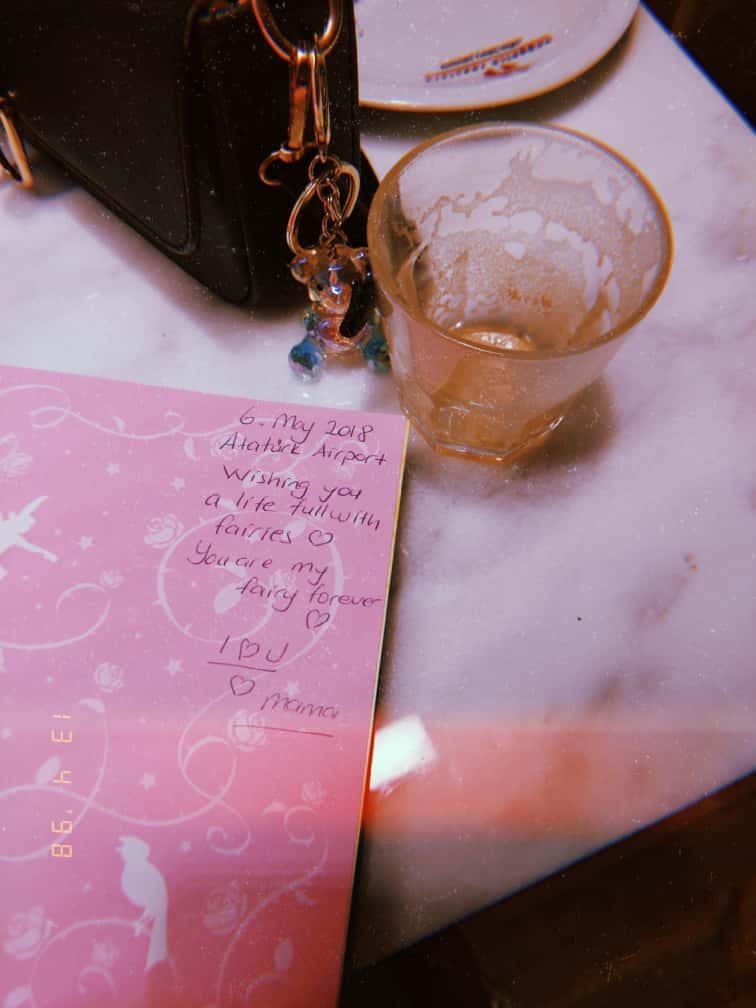 6. May 2018
Atatürk Airport
Wishing you
a life full with
fairies ♡
You are my
fairy forever
♡
I ♡ U
♡ mama
13 4 '98